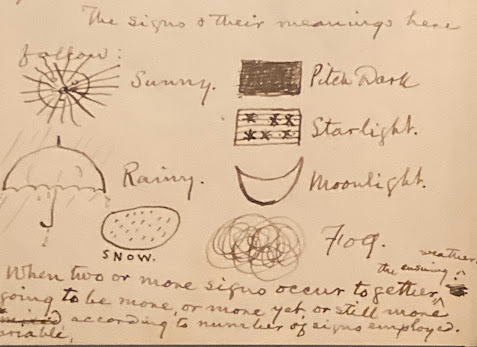 The signs & their meanings here
follow:
Sunny.
Pitch Dark
Starlight.
Rainy.
Moonlight.
SNOW.
Fog.
weather
the ensuing
When two or more signs occur together,
going to be more, or more yet, or still more
according to number of signs employed.
variable,